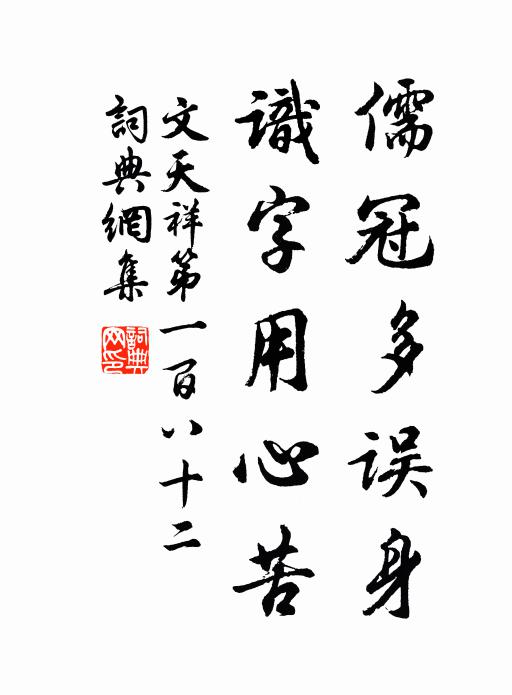 儒冠多误身
識字用心苦
文天祥第一百八十二
詞典網集
詞典网印